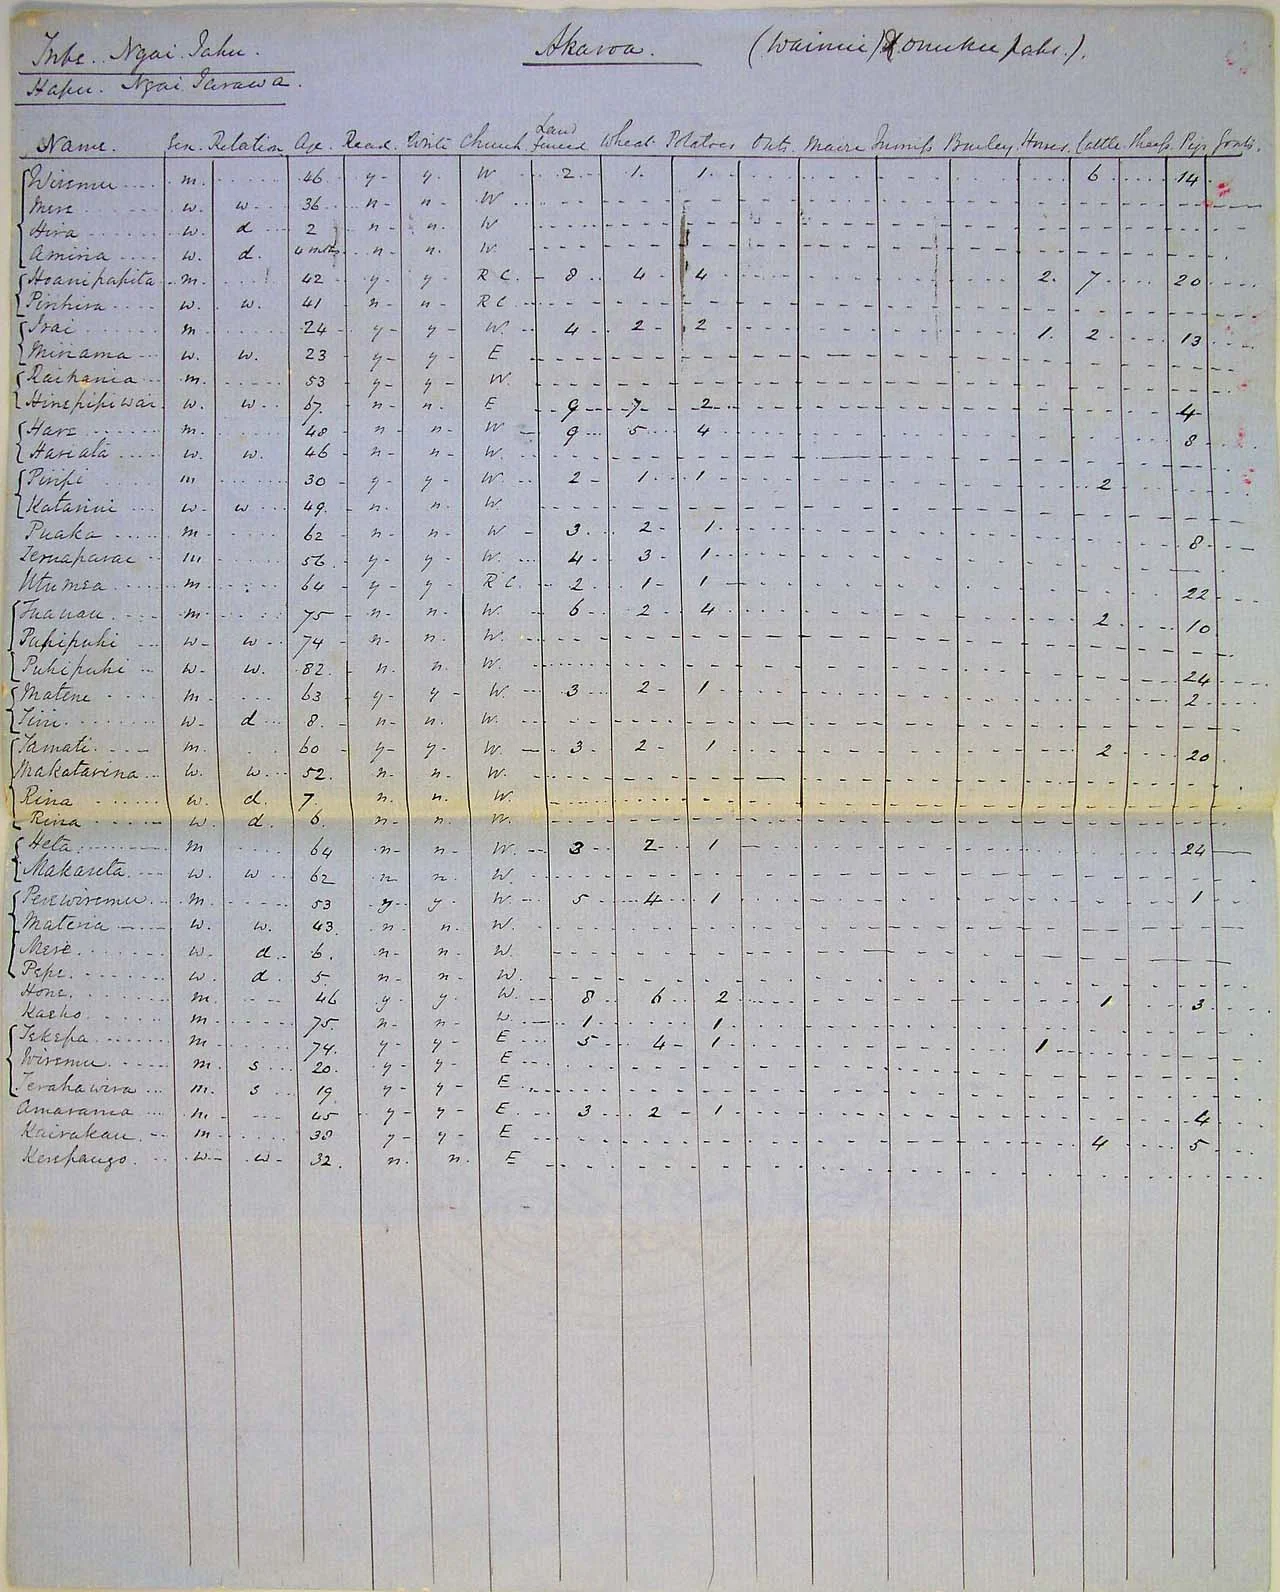 Tribe. Ngai Tahu.
Akaroa.
(Wainui) & Onuku pahs.).
Hapu. Ngai Tarawa.
Name. Sex. Relation Age. Read. Write Church Land fenced Wheat Potatoes Oats. Maize Turnips Barley Horses. Cattle Sheep. Pigs Goats.
Wiremu m. 46 y y. W 2 1. 1 6 14
Mere w. w 36 n n. W
Hira w. d 2 n n. W
Amiria w. d. 4 mths n n. W.
Hoanipapita m. 42 y y R C. 8 4 4 2. 7 20
Pirihira w. w. 41 n n R C
Irai m 24 y y W. 4 2 2 1. 2 13
Miriama w. w. 23 y y E
Raikania m. 53 y y W.
Hinepipiwai w. w 67. n n. E 9 7 2 4
Hare m. 48 n n. W 9 5 4 8
Hareata w. w. 46 n n. W.
Piripi m 30 y y W. 2 1 1 2
Katarini w. w 49. n. n W.
Puaka m. 62 n n W 3. 2 1. 8
Teruaparae m 56 y y W. 4 3 1. 22
Utumea m. 64 y y R C. 2 1 1
Tuauau m. 75 n n. W. 6 2 4 2 10
Puhipuhi w. w 74 n n. W.
Puhipuhi w. w. 82. n. n. W. 24
Matene m. 63 y y W 3 2 1 2
Tini. w. d 8. n n. W.
Tamati. m. 60 y y. W. 3 2 1 2 20
Makatarina w. w 52. n. n. W.
Rina w. d. 7. n. n. W.
Rina w. d. 6. n n. W.
Heta m 64 n n W. 3 2 1 24
Makareta w. w 62 n n. W.
Perewiremu m. 53 y y. W. 5 4 1 1
Materia w. w. 43. n. n. W.
Mere w. d 6. n n. W.
Pepe. w. d 5. n n. W.
Hone. m. 46 y y. W. 8 6 2 1 3
Kaeho m 75. n n. W. 1 1
Tekepa m 74. y y E 5 4 1 1
Wiremu m. s 20. y y E
Terahawira m. s 19 y y E.
Amarama m. 45 y y E 3 2 1 4
Kairakau. m 38 y y E 4 5
Kerepaugo. w w 32. n. n. E